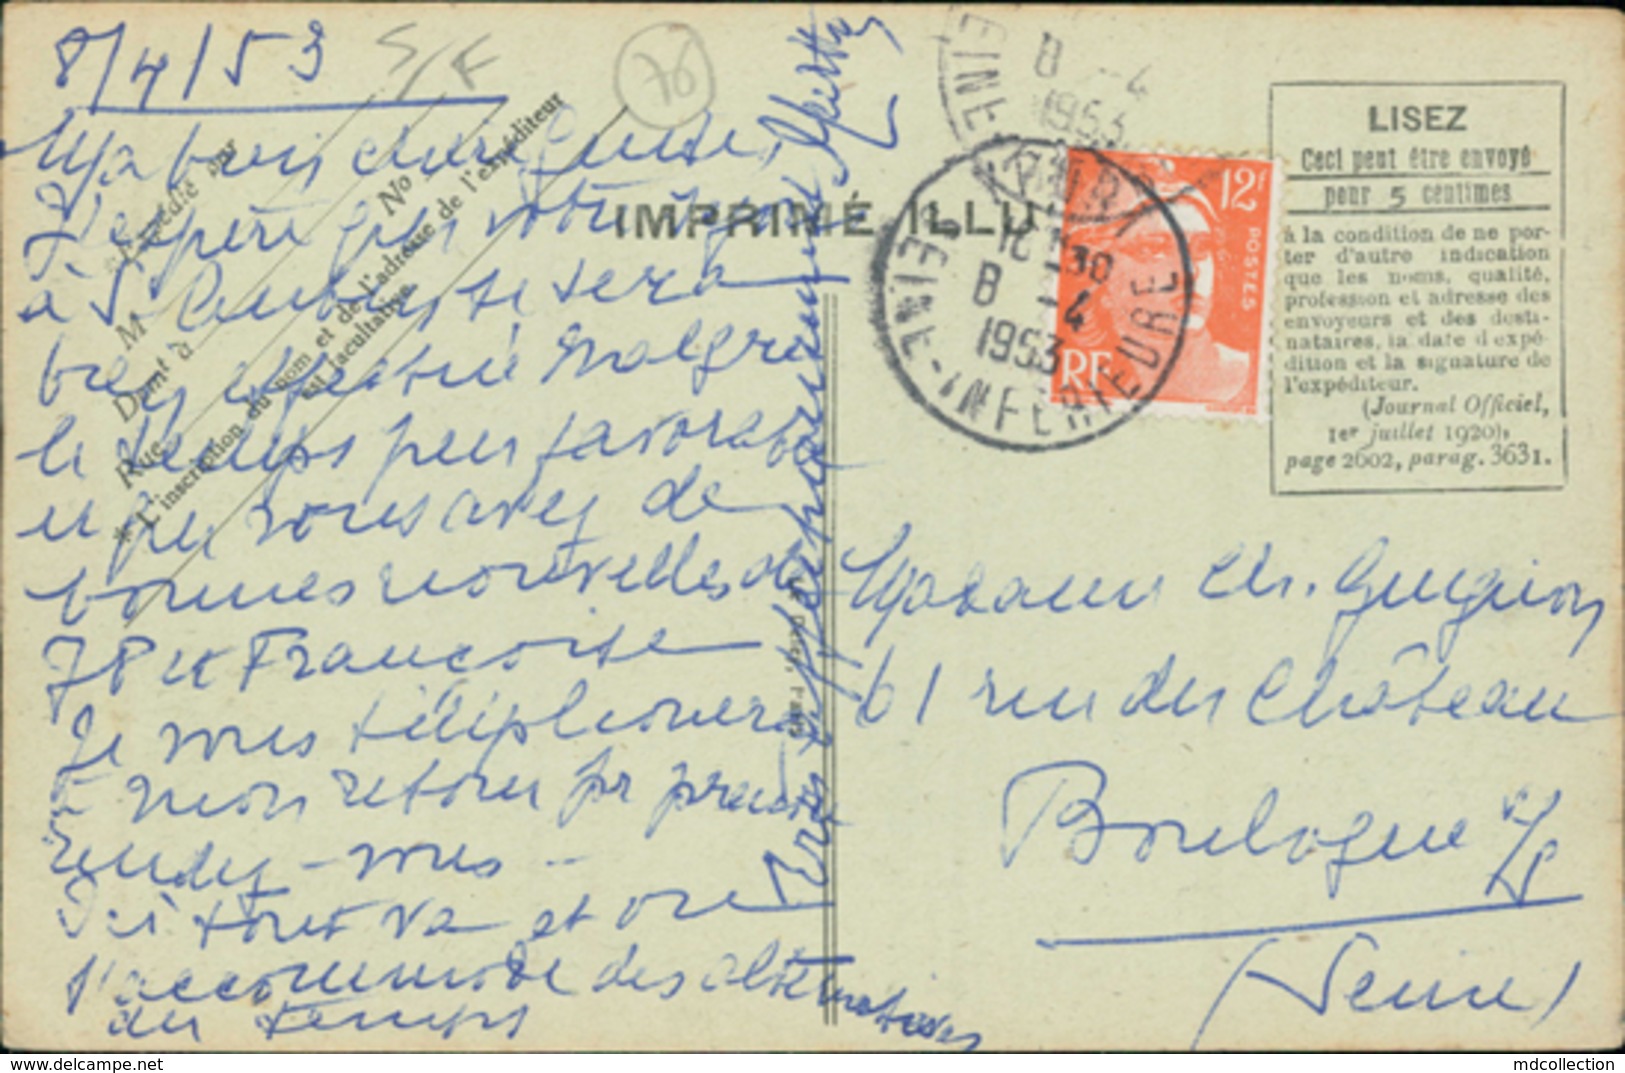 8/4/53
S/F
76
Ma bien chère
J'espère que votre
à St sera
bien effectué malgré
le temps peu favorable
et que vous avez de
bonnes nouvelles de
J P et Françoise
Je vous téléphonerai
à mon retour pr prendre
rendez-vous -
Ici tout va et on
s'accommode des alternatives
du temps
Expédié par
M
Demt à
Rue
No
* L'inscription du nom et de l'adresse de l'expéditeur
est facultative.
IMPRIMÉ ILLU
EINE
8 -4
1953
16 30
8 -4
1953
SEINE-INFERIEURE
12F
POSTES
RF
LISEZ
Ceci peut être envoyé
pour 5 centimes
à la condition de ne por-
ter d'autre indication
que les noms, qualité,
profession et adresse des
envoyeurs et des desti-
nataires, la date d'expé-
dition et la signature de
l'expéditeur.
(Journal Officiel,
1er juillet 1920),
page 2602, parag. 3631.
Madame Ch. Guignon
61 rue du Château
Boulogne s/S
(Seine)
mdcollection